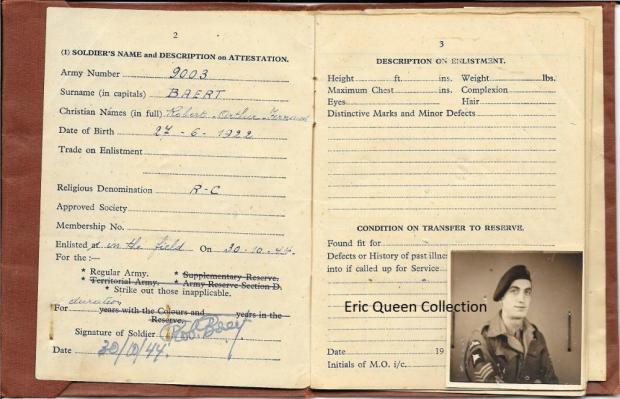 2
(1) SOLDIER'S NAME and DESCRIPTION on ATTESTATION.
Army Number 9003
Surname (in capitals) BAERT
Christian Names (in full) Robert. Arthur. Fernand
Date of Birth 27-6-1922
Trade on Enlistment
Religious Denomination R-C
Approved Society
Membership No.
Enlisted at in the field On 30-10-44.
For the :—
* Regular Army. * Supplementary Reserve.
* Territorial Army. * Army Reserve Section D.
* Strike out those inapplicable.
duration
For years with the Colours and years in the
Reserve.
Signature of Soldier
Date 30/10/44.
3
DESCRIPTION ON ENLISTMENT.
Height ft. ins. Weight lbs.
Maximum Chest ins. Complexion
Eyes Hair
Distinctive Marks and Minor Defects
CONDITION ON TRANSFER TO RESERVE.
Found fit for
Defects or History of past illnes
into if called up for Service
Eric Queen Collection
Date 19
Initials of M.O. i/c.